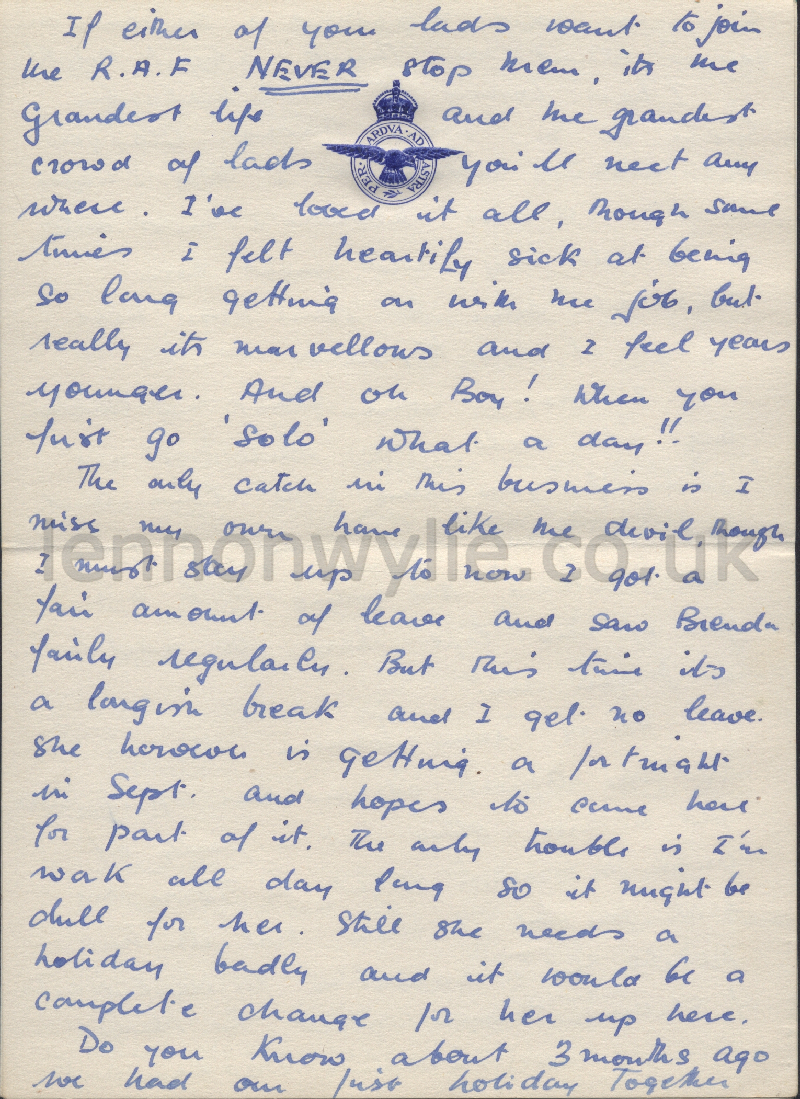 If either of your lads want to join
the R.A.F NEVER stop them, its the
Grandest life and the grandest
PER · ARDVA · AD · ASTRA
crowd of lads you'll meet any
where. I've loved it all, though some
times I felt heartily sick at being
so long getting on with the job, but
really its marvellows and I feel years
younger. And oh Boy! When you
first go 'solo' what a day!!
The only catch in this business is I
miss my own home like the devil, though
lennonwylie.co.uk
I must say up to now I got a
fair amount of leave and saw Brenda
fairly regularly. But this time its
a longish break and I get no leave.
She however is getting a fortnight
in Sept. and hopes to come here
for part of it. The only trouble is I'm
work all day long so it might be
dull for her. Still she needs a
holiday badly and it would be a
complete change for her up here.
Do you know about 3 months ago
we had our first holiday together